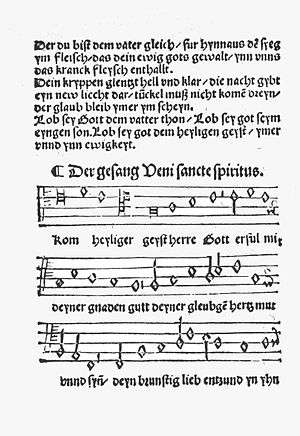 Der du bist dem vater gleich / fur hynnaus dē syeg
ym fleisch / das dein ewig gots gewalt / ynn vnns
das kranck fleysch enthallt.
Dein kryppen glentzt hell vnd klar / die nacht gybt
eyn new liecht dar / tūckel muß nicht komē dreyn /
der glaub bleib ymer ym scheyn.
Lob sey Gott dem vatter thon / Lob sey got seym
eyngen son. Lob sey got dem heyligen geyst / ymer
vnnd ynn ewigkeyt.
¶ Der gesang Veni sancte spiritus.
Kom heyliger geyst herre Gott erful mit
deyner gnaden gutt deyner gleubgē hertz mut
vnnd syn̄ deyn brunstig lieb entzund yn yhn